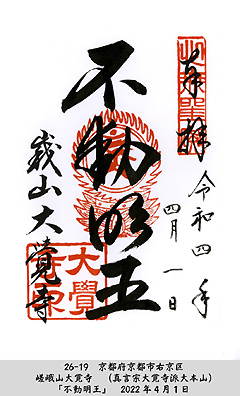 奉拝
令和四年
四月一日
不動明王
嵯峨山大覺寺
大覺寺印
26-19 京都府京都市右京区
嵯峨山大覚寺 (真言宗大覚寺派大本山)
「不動明王」 2022年4月1日